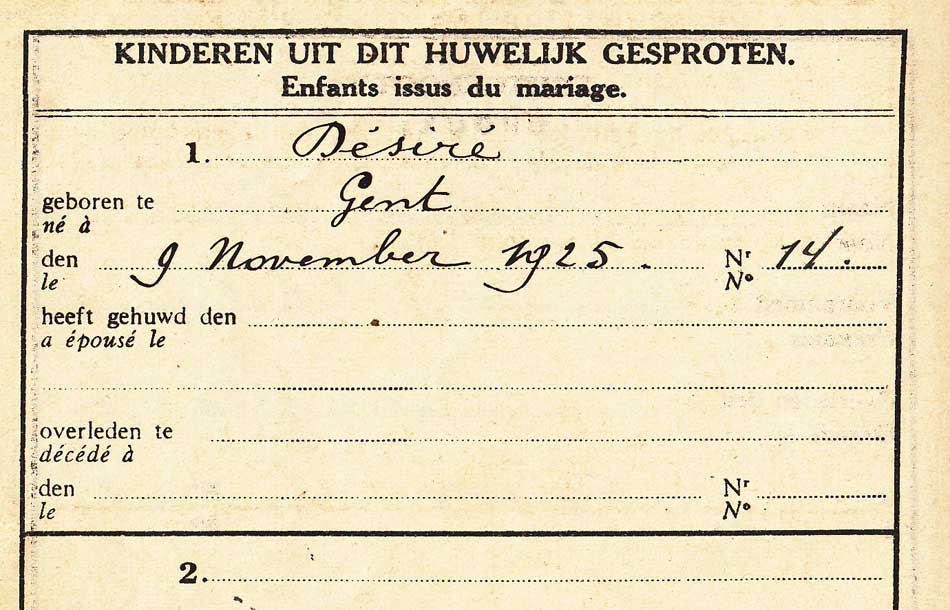 KINDEREN UIT DIT HUWELIJK GESPROTEN.
Enfants issus du mariage.
1. Désiré
geboren te Gent
né à
den 9 November 1925. Nr 14.
le No
heeft gehuwd den
a épousé le
overleden te
décédé à
den Nr
le No
2.